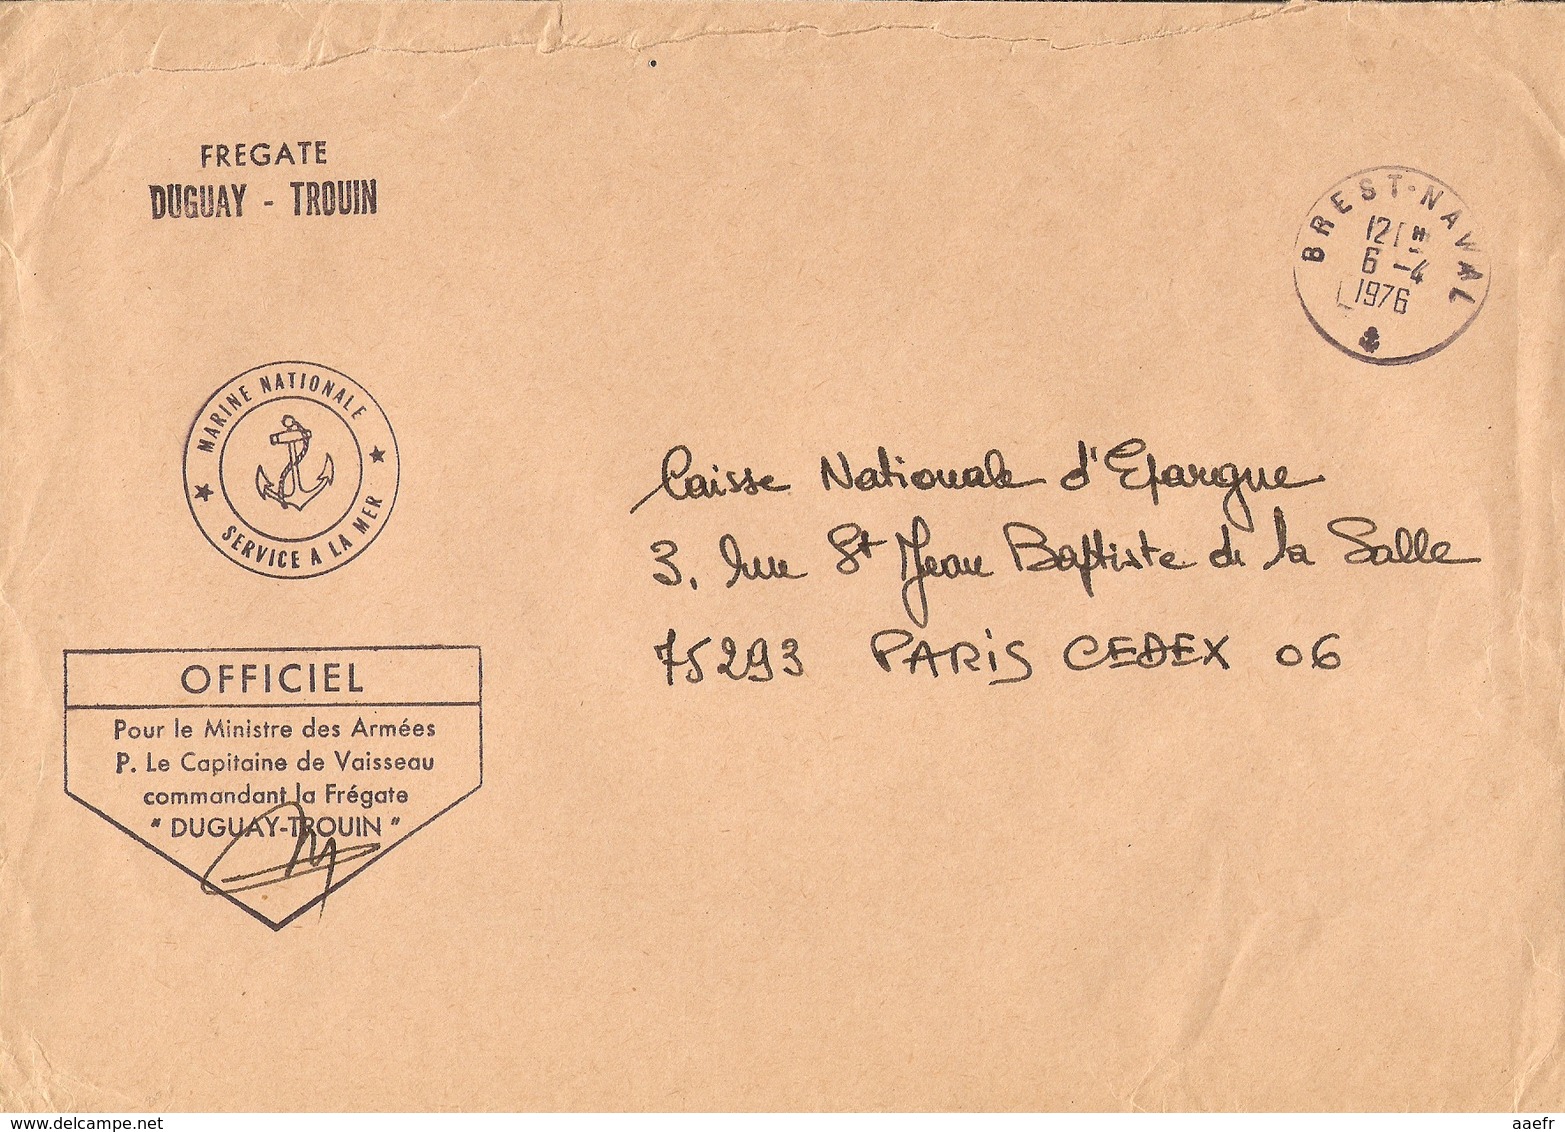 FREGATE
DUGUAY - TROUIN
BREST-NAVAL
12 H
6 -4
1976
MARINE NATIONALE
SERVICE A LA MER
Caisse Nationale d'Epargne
3, rue St Jean Baptiste de la Salle
75293 PARIS CEDEX 06
OFFICIEL
Pour le Ministre des Armées
P. Le Capitaine de Vaisseau
commandant la Frégate
" DUGUAY-TROUIN "
www.delcampe.net
aaefr